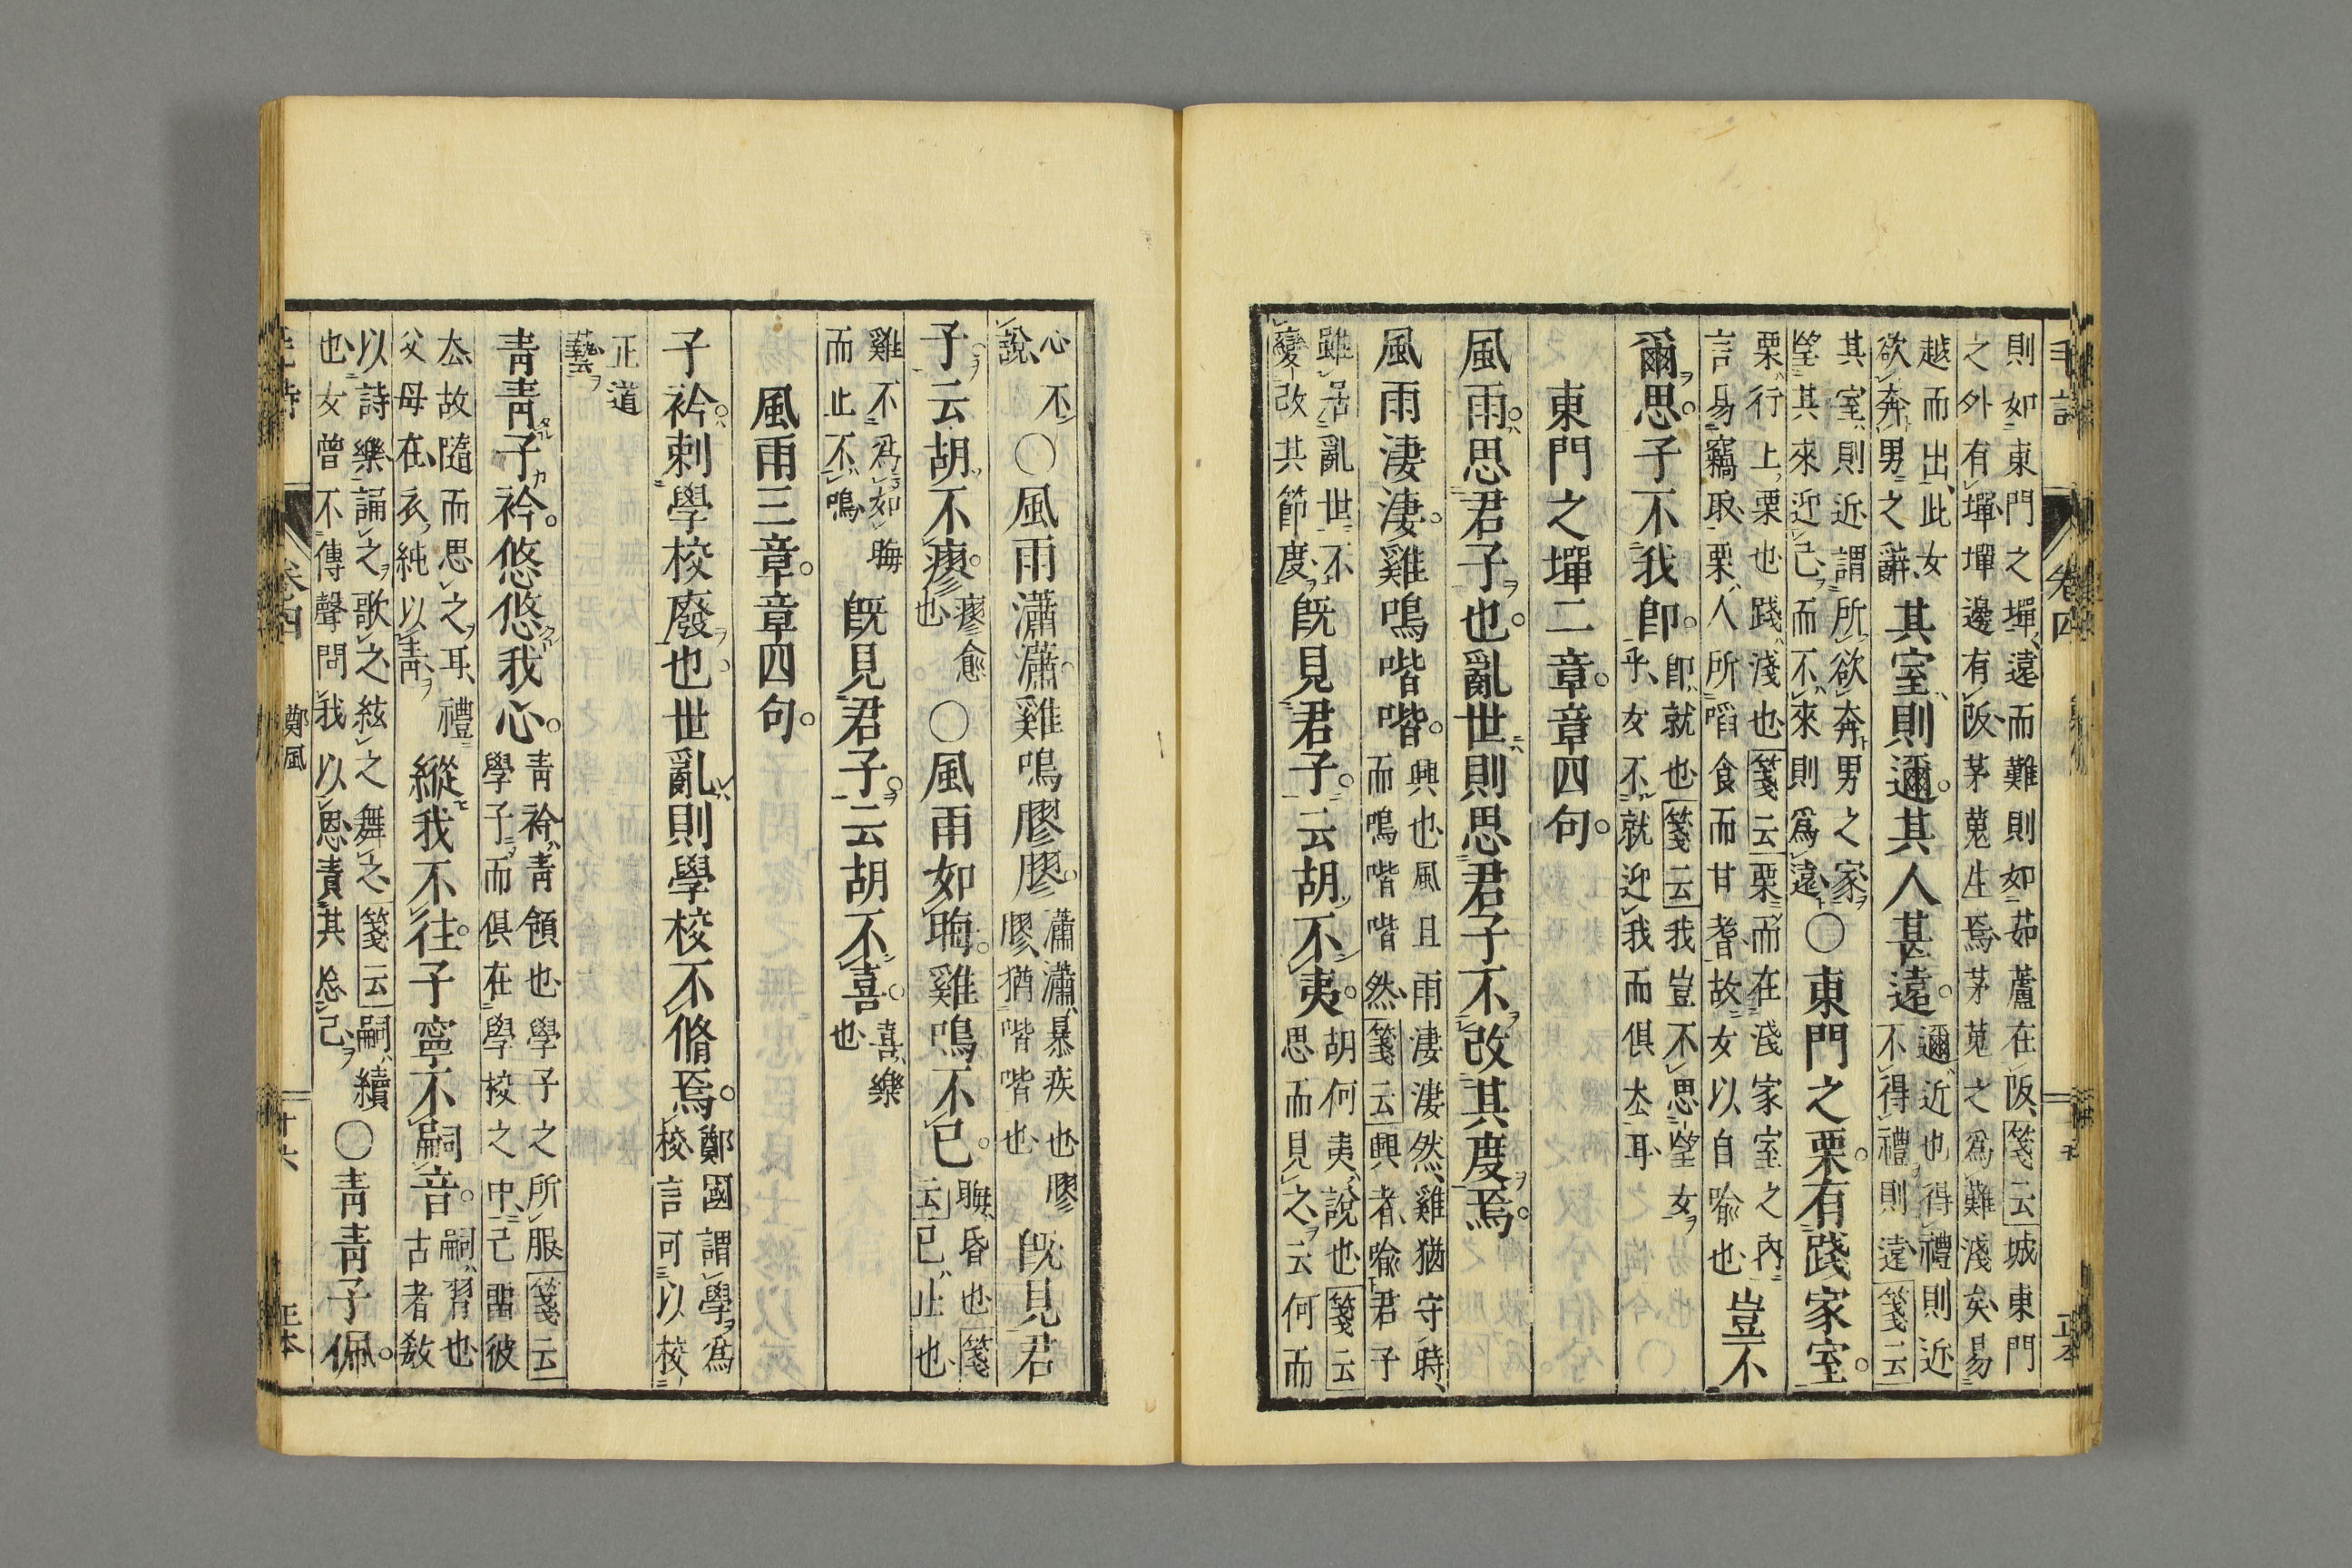 則如東門之墠遠而難則如茹藘在阪箋云城東門
之外有墠墠邊有阪茅蒐生焉茅蒐之爲難淺矣易
越而出此女
欲奔男之辭
其室則邇其人甚遠
邇近也得禮則近
不得禮則遠箋云
其室則近謂所欲奔男之家
望其來迎己而不來則爲遠
〇東門之栗有踐家室
栗行上栗也踐淺也箋云栗而在淺家室之內
言易竊取栗人所啗食而甘耆故女以自喩也
豈不
爾思子不我卽
卽就也箋云我豈不思望女
乎女不就迎我而俱去耳
東門之墠二章章四句
風雨思君子也亂世則思君子不改其度焉
風雨淒淒雞鳴喈喈
興也風且雨淒淒然雞猶守時
而鳴喈喈然箋云興者喩君子
雖居亂世不
變改其節度
旣見君子云胡不夷
胡何夷說也箋云
思而見之云何而
心不
說
〇風雨瀟瀟雞鳴膠膠
瀟瀟暴疾也膠
膠猶喈喈也
旣見君
子云胡不瘳
瘳愈
也
〇風雨如晦雞鳴不已
晦昏也箋
云已止也
雞不爲如晦
而止不鳴
旣見君子云胡不喜
喜樂
也
風雨三章章四句
子衿刺學校廢也世亂則學校不脩焉
鄭國謂學爲
校言可以校
正道
藝
靑靑子衿悠悠我心
靑衿靑領也學子之所服箋云
學子而俱在學校之中己留彼
去故隨而思之耳禮
父母在衣純以靑
縱我不往子寧不嗣音
嗣習也
古者敎
以詩樂誦之歌之絃之舞之箋云嗣續
也女曾不傳聲問我以恩責其忘己
〇靑靑子佩
卷四
鄭風
十六
正本